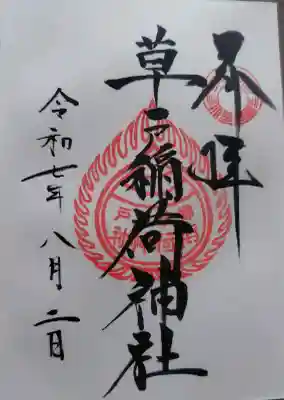 奉拝
草戸稲荷神社
令和七年八月二日